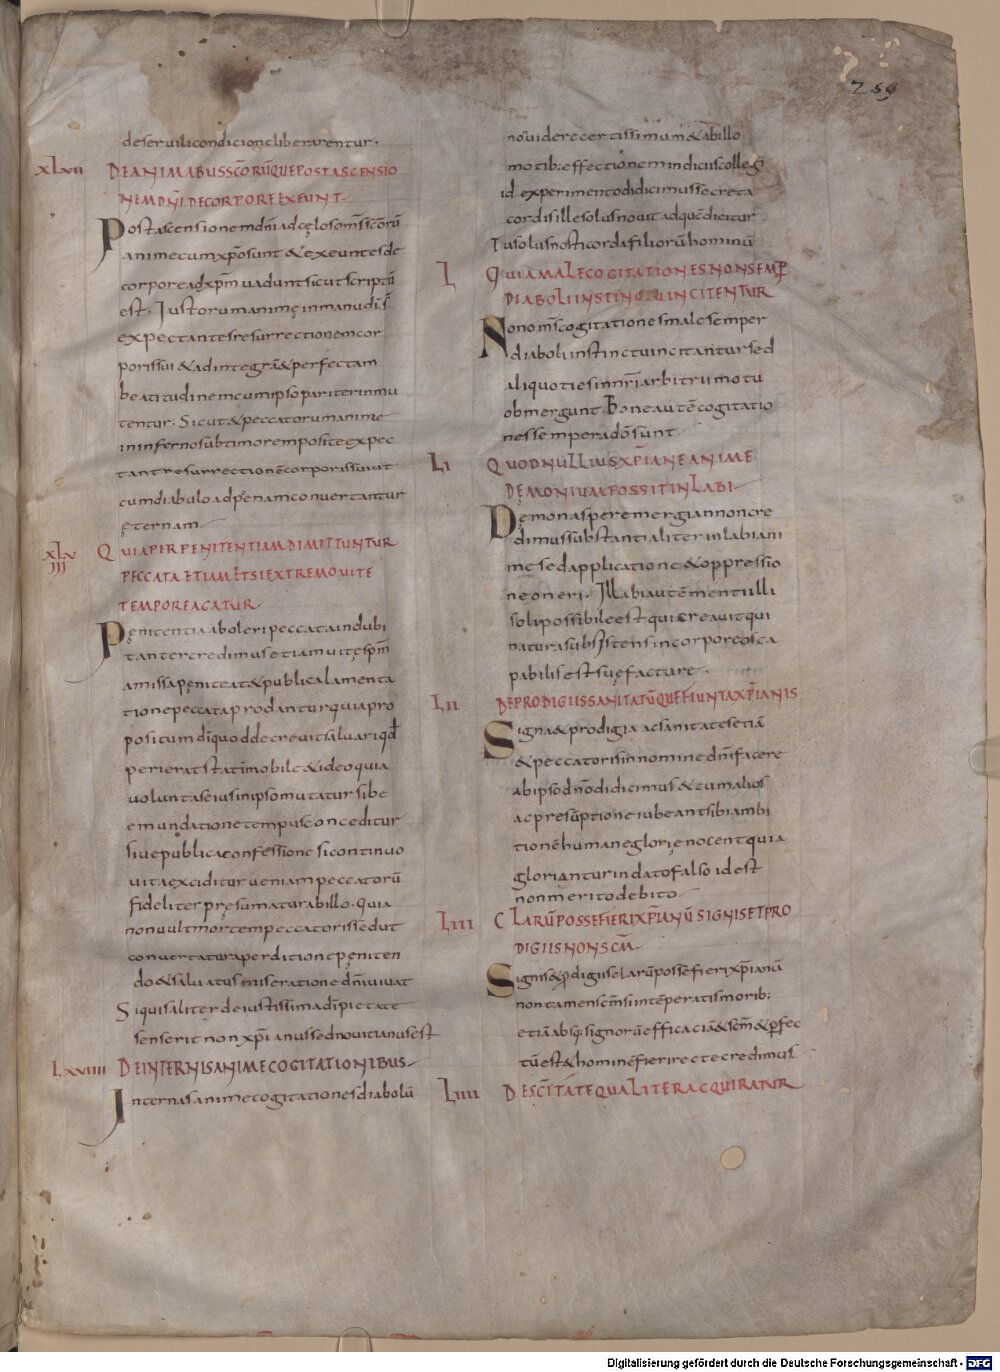 259
deseruili condicione liberarentur.
XLVII DE ANIMABUS SC̄ORŪ QUE POST ASCENSIO
NEM DN̄I DE CORPORE EXEUNT
Post ascensionem dn̄i ad cęlos om̄s sc̄orū
anime cum xp̄o sunt & exeuntes de
corpore ad xp̄m uadunt sicut scriptū
est. Iustorum animę in manu dī s̄
expectantes resurrectionem cor
poris sui & ad integrā & perfectam
beatitudinem cum ipso pariter inmu
tentur. Sicut & peccatorum anime
in inferno sub timore posite expec
tant resurrectionē corporis sui ut
cum diabulo ad pęnam conuertantur
ęternam
XLVIII QUIA PER PENITENTIAM DIMITTUNTUR
PECCATA ETIAM ETSI EXTREMO UITE
TEMPORE AGATUR
Pęnitentia aboleri peccata indubi
tanter credimus etiam uitę sp̄m
amissa pęniteat & publica lamenta
tione peccata prodantur quia pro
positum dī quod decreuit saluari qd̄
perierat stat inmobile & ideo quia
uoluntas eius in ipso mutatur siue
emundatione tempus conceditur
siue publica confessione si continuo
uita exciditur ueniam peccatorū
fideliter pręsumatur ab illo. quia
non uult mortem peccatoris sed ut
conuertatur a perditione peniten
do & saluatus miseratione dn̄i uiuat
Si quis aliter de iustissima dī pietate
senserit non xp̄ianus sed nouitianus est
LXVIIII DE INTERNIS ANIME COGITATIONIBUS
Internas anime cogitationes diabolū
non uidere certissimum & ab illo
motib: effectionem indiciis collegi
id experimento didicimus secreta
cordis ille solus nouit ad quē dicitur
Tu solus nosti corda filiorū hominū
L QUIA MALE COGITATIONES NON SEMP̄
DIABOLI INSTINCTU INCITENTUR
Non om̄s cogitationes male semper
diaboli instinctu incitantur sed
aliquoties in nr̄i arbitrii motu
obmergunt. Bone autē cogitatio
nes semper a dō sunt
LI QUOD NULLIUS XP̄IANE ANIME
DĘMONIUM POSSIT INLABI
Dęmonas per emergian non cre
dimus substantialiter inlabi ani
mę sed applicatione & oppressio
ne oneri. Illabi autē menti illi
soli possibile est qui creauit qui
natura subsistens incorporeos ca
pabilis est suę facture.
LII DE PRODIGIIS SANITATŪ QUE FIUNT A XP̄IANIS
Signa & prodigia ac sanitates etiā
& peccatoris in nomine dn̄i facere
ab ipso dn̄o didicimus & cum alios
ac presūptione iubeant sibi ambi
tionē humane glorię nocent quia
gloriantur in dato falso id est
non merito debito
LIII CLARŪ POSSE FIERI XP̄IANŪ SIGNIS ET PRO
DIGIIS NON SC̄M
Signis & prodigiis clarū posse fieri xp̄ianū
non tamen sc̄m si intēperatis morib:
etiā absq: signorū efficaciā & sc̄m & perfec
tū est & hominē fieri recte credimus
LIIII DE SC̄ITATE QUALITER ACQUIRATUR
Digitalisierung gefördert durch die Deutsche Forschungsgemeinschaft - DFG